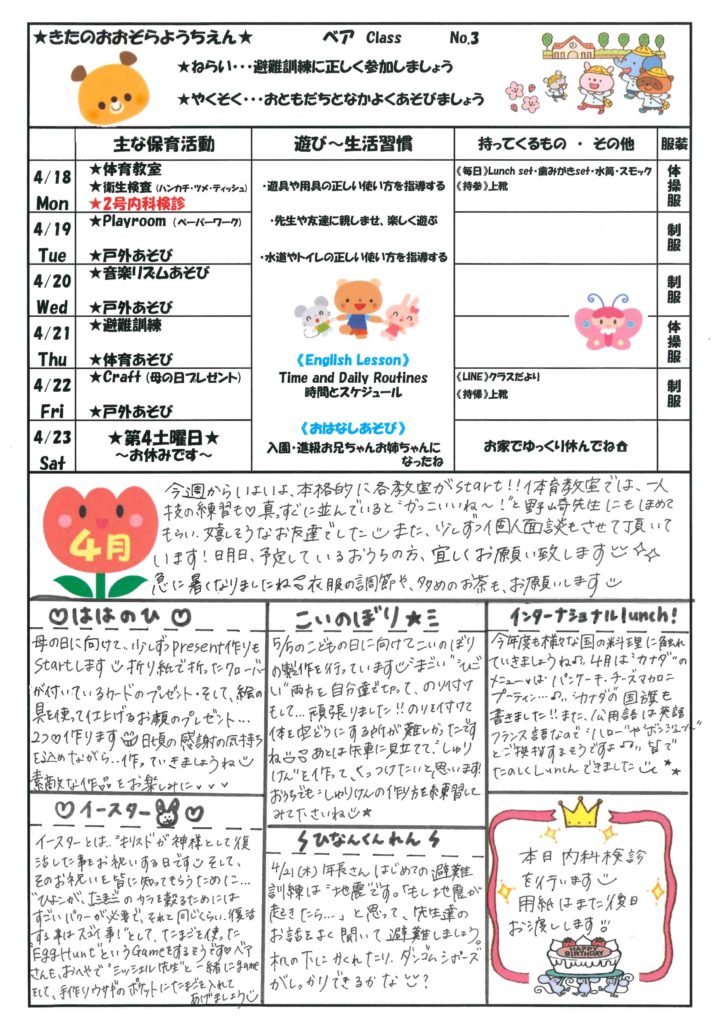 ★きたのおおぞらようちえん★ ベア Class No.3
★ねらい・・・避難訓練に正しく参加しましょう
★やくそく・・・おともだちとなかよくあそびましょう
主な保育活動 遊び～生活習慣 持ってくるもの ・ その他 服装
4/18 Mon
★体育教室
★衛生検査（ハンカチ・ツメ・ティッシュ）
★2号内科検診
《毎日》Lunch set・歯みがきset・水筒・スモック
《持参》上靴
体操服
4/19 Tue
★Playroom（ペーパーワーク）
★戸外あそび
制服
4/20 Wed
★音楽リズムあそび
★戸外あそび
制服
4/21 Thu
★避難訓練
★体育あそび
体操服
4/22 Fri
★Craft（母の日プレゼント）
★戸外あそび
《LINE》クラスだより
《持帰》上靴
制服
4/23 Sat
★第4土曜日★
～お休みです～
お家でゆっくり休んでね
・遊具や用具の正しい使い方を指導する
・先生や友達に親しませ、楽しく遊ぶ
・水道やトイレの正しい使い方を指導する
《English Lesson》
Time and Daily Routines
時間とスケジュール
《おはなしあそび》
入園・進級お兄ちゃんお姉ちゃんに
なったね
4月
今週からいよいよ、本格的に各教室がstart!!体育教室では、一人
技の練習も♡真っすぐに並んでいると"かっこいいね～!"と野崎先生にもほめて
もらい、嬉しそうなお友達でした また、少しずつ個人面談もさせて頂いて
います!日明日、予定しているおうちの方、宜しくお願い致します☆☆
急に暑くなりましたね 衣服の調節や、多めのお茶も、お願いします
♡ははのひ♡
母の日に向けて、少しずつpresent作りも
Startします 折り紙で折ったクローバー
が付いているカードのプレゼント・そして、絵の
具を使って仕上げるお顔のプレゼント...
2つ♡作ります 日頃の感謝の気持ち
を込めながら...作っていきましょうね
素敵な作品をお楽しみに♡♡♡
こいのぼり★ミ
5/5のこどもの日に向けてこいのぼり
の製作を行っています"まごい""ひご
い"両方も自分達でやって、のり付け
もして...頑張りました!!のりを付けて
体を
する所が難しかったです
ね あとは
に見立てて"しゅり
けん"を作って、くっつけたいと思います!
おうちでも しゅりけんの作り方を練習して
みて下さいね★
インターナショナルlunch!
今年度も様々な国の料理に触れ
ていきましょうね♪ 4月は"カナダ"の
メニュー♥は パンケーキ・チーズマカロニ
プーティン...♪ カナダの国旗も
書きました!!また、公用語は英語
フランス語なので"ハロー"や"ボンジュール"
とご挨拶するそうですよ♪♪皆で
たのしくLunchできました★
♡イースター
イースターとは、"キリストが神様として復
活した事をお祝いする日です そして、
そのお祝いを皆に知ってもらうために...
"ひよこが、たまごのカラを割るためには
すごいパワーが必要で、それと同じくらい、復活
する事はスゴイ事!"として、たまごを使った
"Egg Hunt"というGameをするそうです♡ベア
さんも、おへやで"ミッシェル先生"と一緒にgame
をして、手作りウサギのポケットにたまごを入れて
あげましょう
ひなんくんれん
4/21(木)年長さんはじめての避難
訓練は"地震"です。「もし地震が
起きたら...」と思って、先生達の
お話をよく聞いて避難しましょう。
机の下にかくれたり、ダンゴムシポーズ
がしっかりできるかな?
本日内科検診
を行います
用紙はまた後日
お渡しします!!
HAPPY
BIRTHDAY